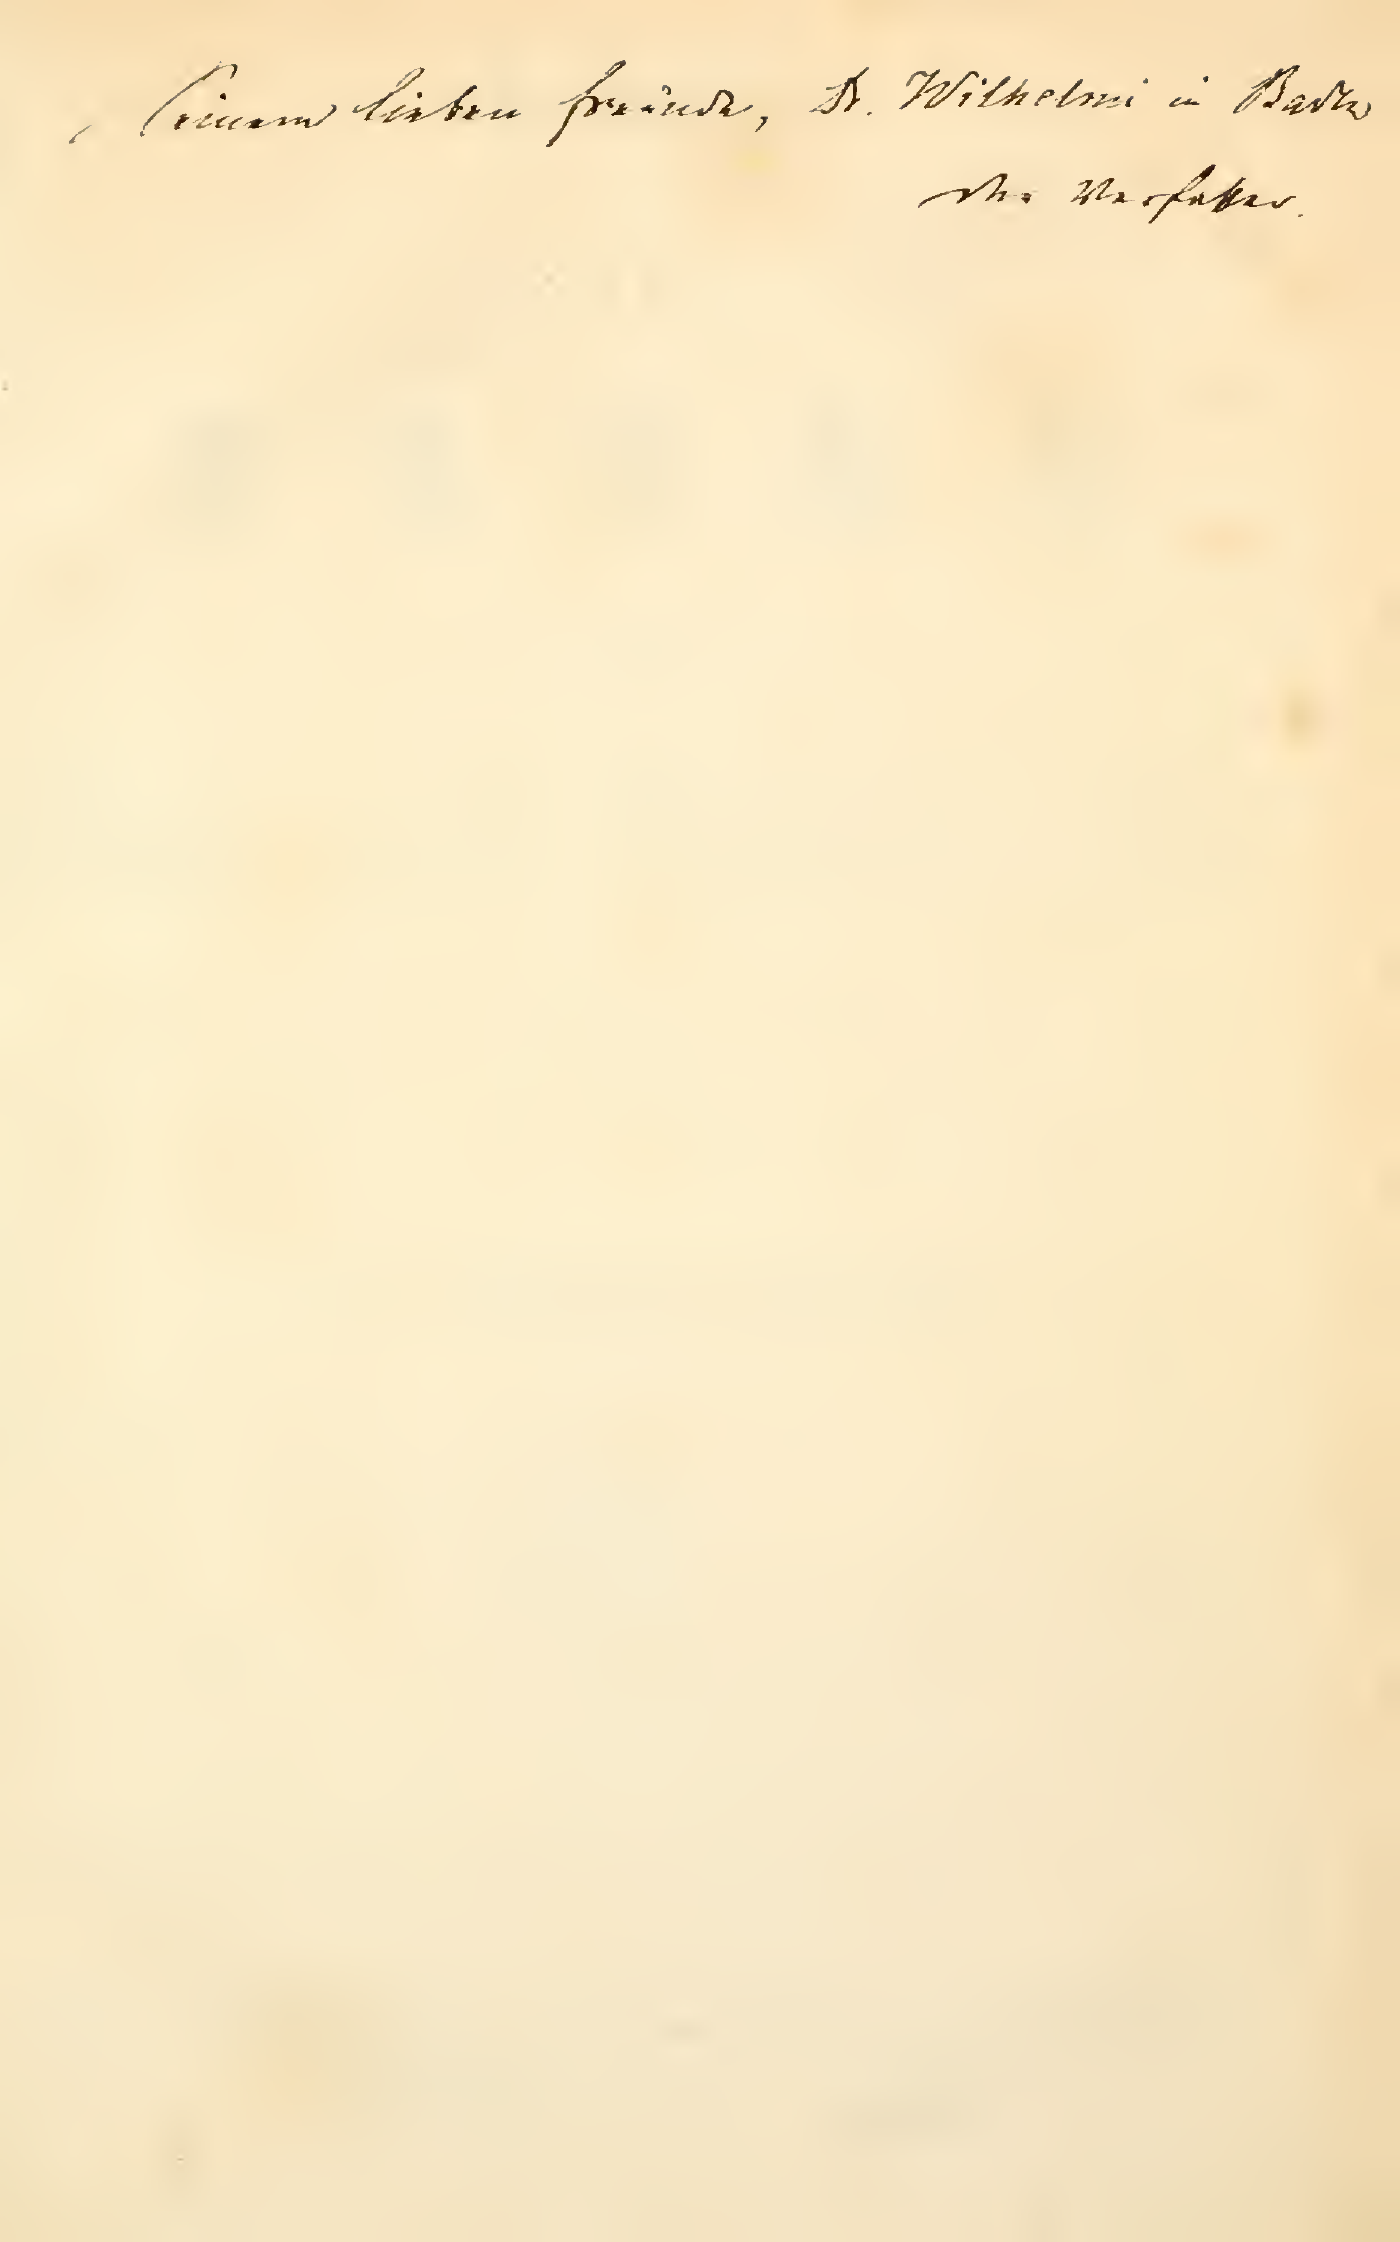 Seinem lieben Freunde, Dr. Wilhelmi in Baden
der Verfasser.